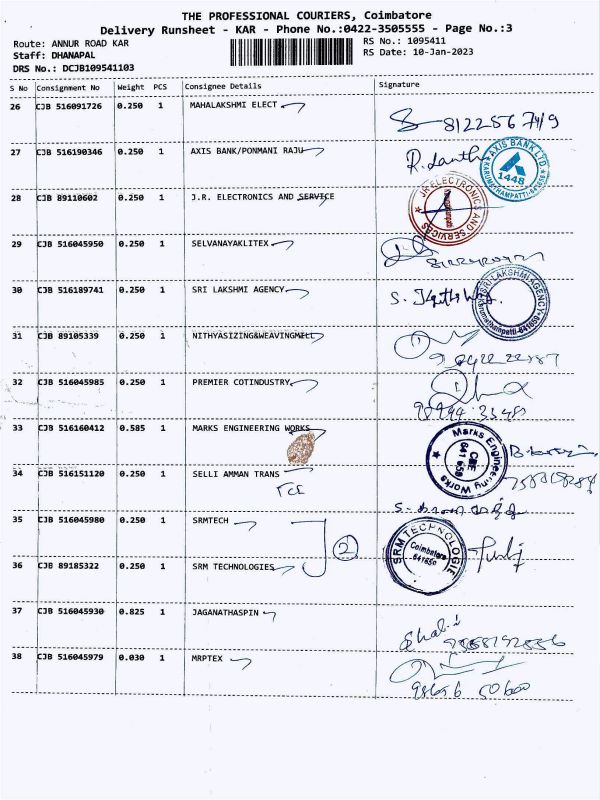 THE PROFESSIONAL COURIERS, Coimbatore
Delivery Runsheet - KAR - Phone No.:0422-3505555 - Page No.:3
Route: ANNUR ROAD KAR
RS No.: 1095411
Staff: DHANAPAL
RS Date: 10-Jan-2023
DRS No.: DCJB109541103
S No Consignment No Weight PCS Consignee Details Signature
26 CJB 516091726 0.250 1 MAHALAKSHMI ELECT
27 CJB 516190346 0.250 1 AXIS BANK/PONMANI RAJU
AXIS BANK LTD.
1448
28 CJB 89110602 0.250 1 J.R. ELECTRONICS AND SERVICE
JR ELECTRONICS AND SERVICES
29 CJB 516045950 0.250 1 SELVANAYAKLITEX
30 CJB 516189741 0.250 1 SRI LAKSHMI AGENCY
SRI LAKSHMI AGENCY
Karumathampatti-641659
31 CJB 89105339 0.250 1 NITHYASIZING&WEAVINGMILL
32 CJB 516045985 0.250 1 PREMIER COTINDUSTRY
33 CJB 516160412 0.585 1 MARKS ENGINEERING WORKS
Marks Engineering Works
CBE
641 659
34 CJB 516151120 0.250 1 SELLI AMMAN TRANS
35 CJB 516045980 0.250 1 SRMTECH
2
SRM TECHNOLOGIE
Coimbatore
641659
36 CJB 89185322 0.250 1 SRM TECHNOLOGIES
37 CJB 516045930 0.825 1 JAGANATHASPIN
38 CJB 516045979 0.030 1 MRPTEX